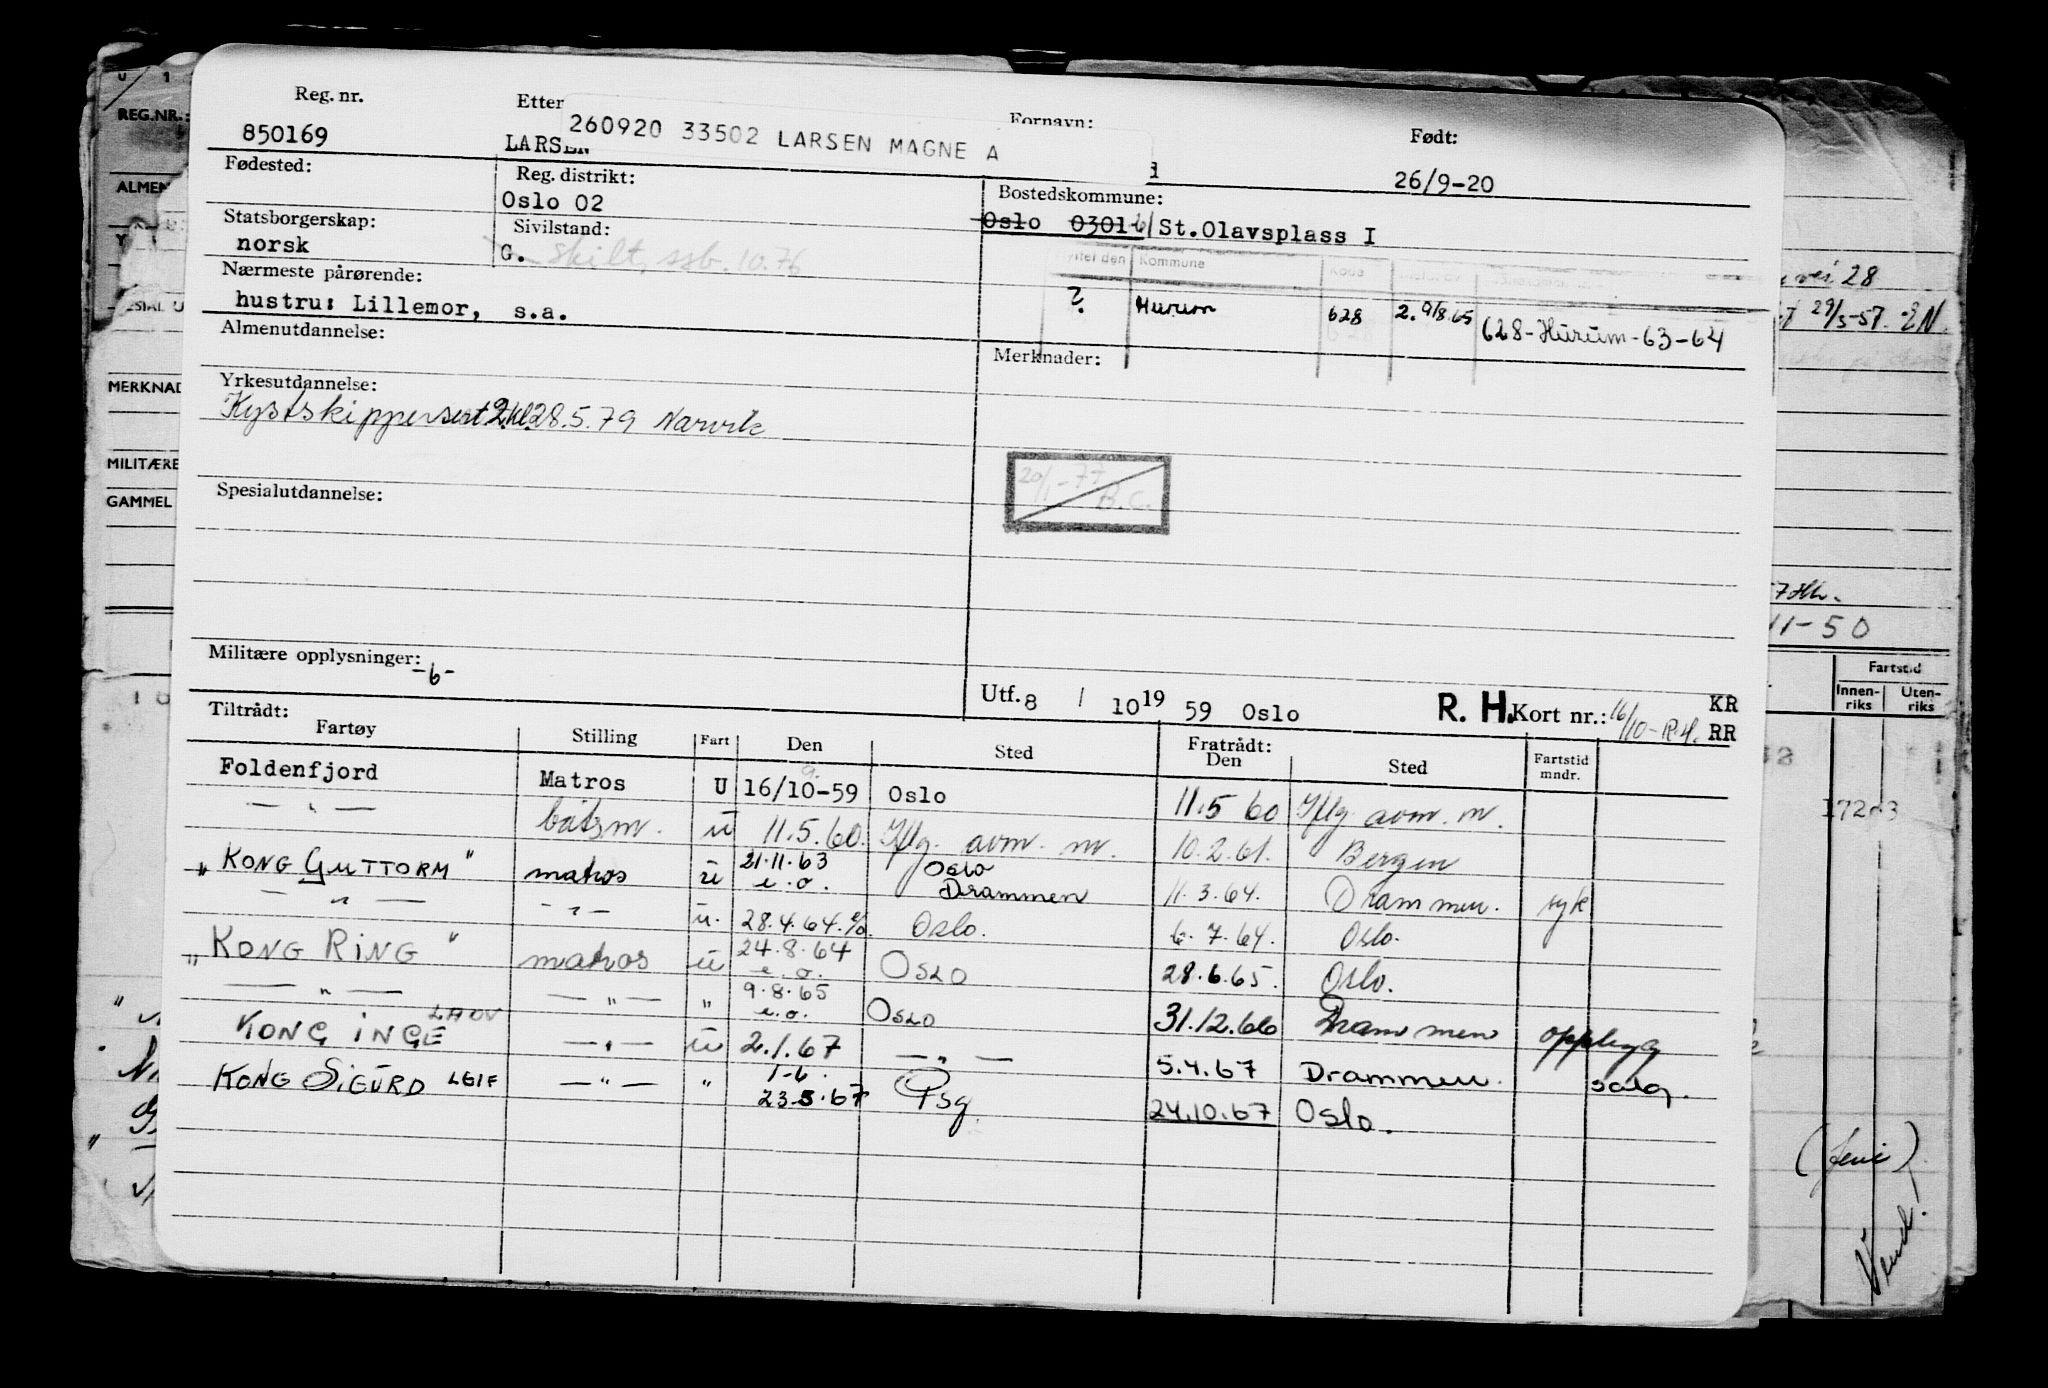 Reg. nr.
850169
Etter
LARSEN
260920 33502 LARSEN MAGNE A
Fornavn:
Født:
26/9-20
Fødested:
Reg. distrikt:
Oslo 02
Bostedskommune:
Oslo 0301 St.Olavsplass I
Statsborgerskap:
norsk
Sivilstand:
G. skilt, ssb. 10.76
Kommune Kode
? Hurum 628 2. 9/8 65 628-Hurum-63-64
Nærmeste pårørende:
hustru: Lillemor, s.a.
Almenutdannelse:
Merknader:
Yrkesutdannelse:
Kystskippersert 2 kl. 28.5.79 Narvik
20/1-77 B.C.
Spesialutdannelse:
Militære opplysninger:
-6-
Utf. 8 / 10 19 59 Oslo
R. H. Kort nr.: 16/10-R.H. KR
RR
Tiltrådt:
Fartøy Stilling Fart Den Sted
Fratrådt:
Den Sted Fartstid mndr.
Foldenfjord Matros U 16/10-59 Oslo 11.5 60 Iflg. avm. m.
— " — båtsm. u 11.5.60. Iflg. avm. m. 10.2.61. Bergen
"KONG GUTTORM" matros u 21.11.63 e.o. Oslo Drammen 11.3.64. Drammen. syk
— " — — " — u. 28.4.64. e/o. Oslo. 6.7.64. Oslo.
"KONG RING" matros u 24.8.64 e.o. OSLO 28.6.65. Oslo.
— " — — " — " 9.8.65 e.o. OSLO 31.12.66 Drammen opplegg
KONG INGE — " — u 2.1.67 — " — 5.4.67 Drammen. salg.
KONG SIGURD LEIF — " — " 1-6. 23.5.67 Psg. 24.10.67 Oslo.
REG.NR.:
MERKNAD
MILITÆRE
GAMMEL
vei 28
29/5-57. EN
11-50
Fartstid
Innenriks Utenriks
Vend!